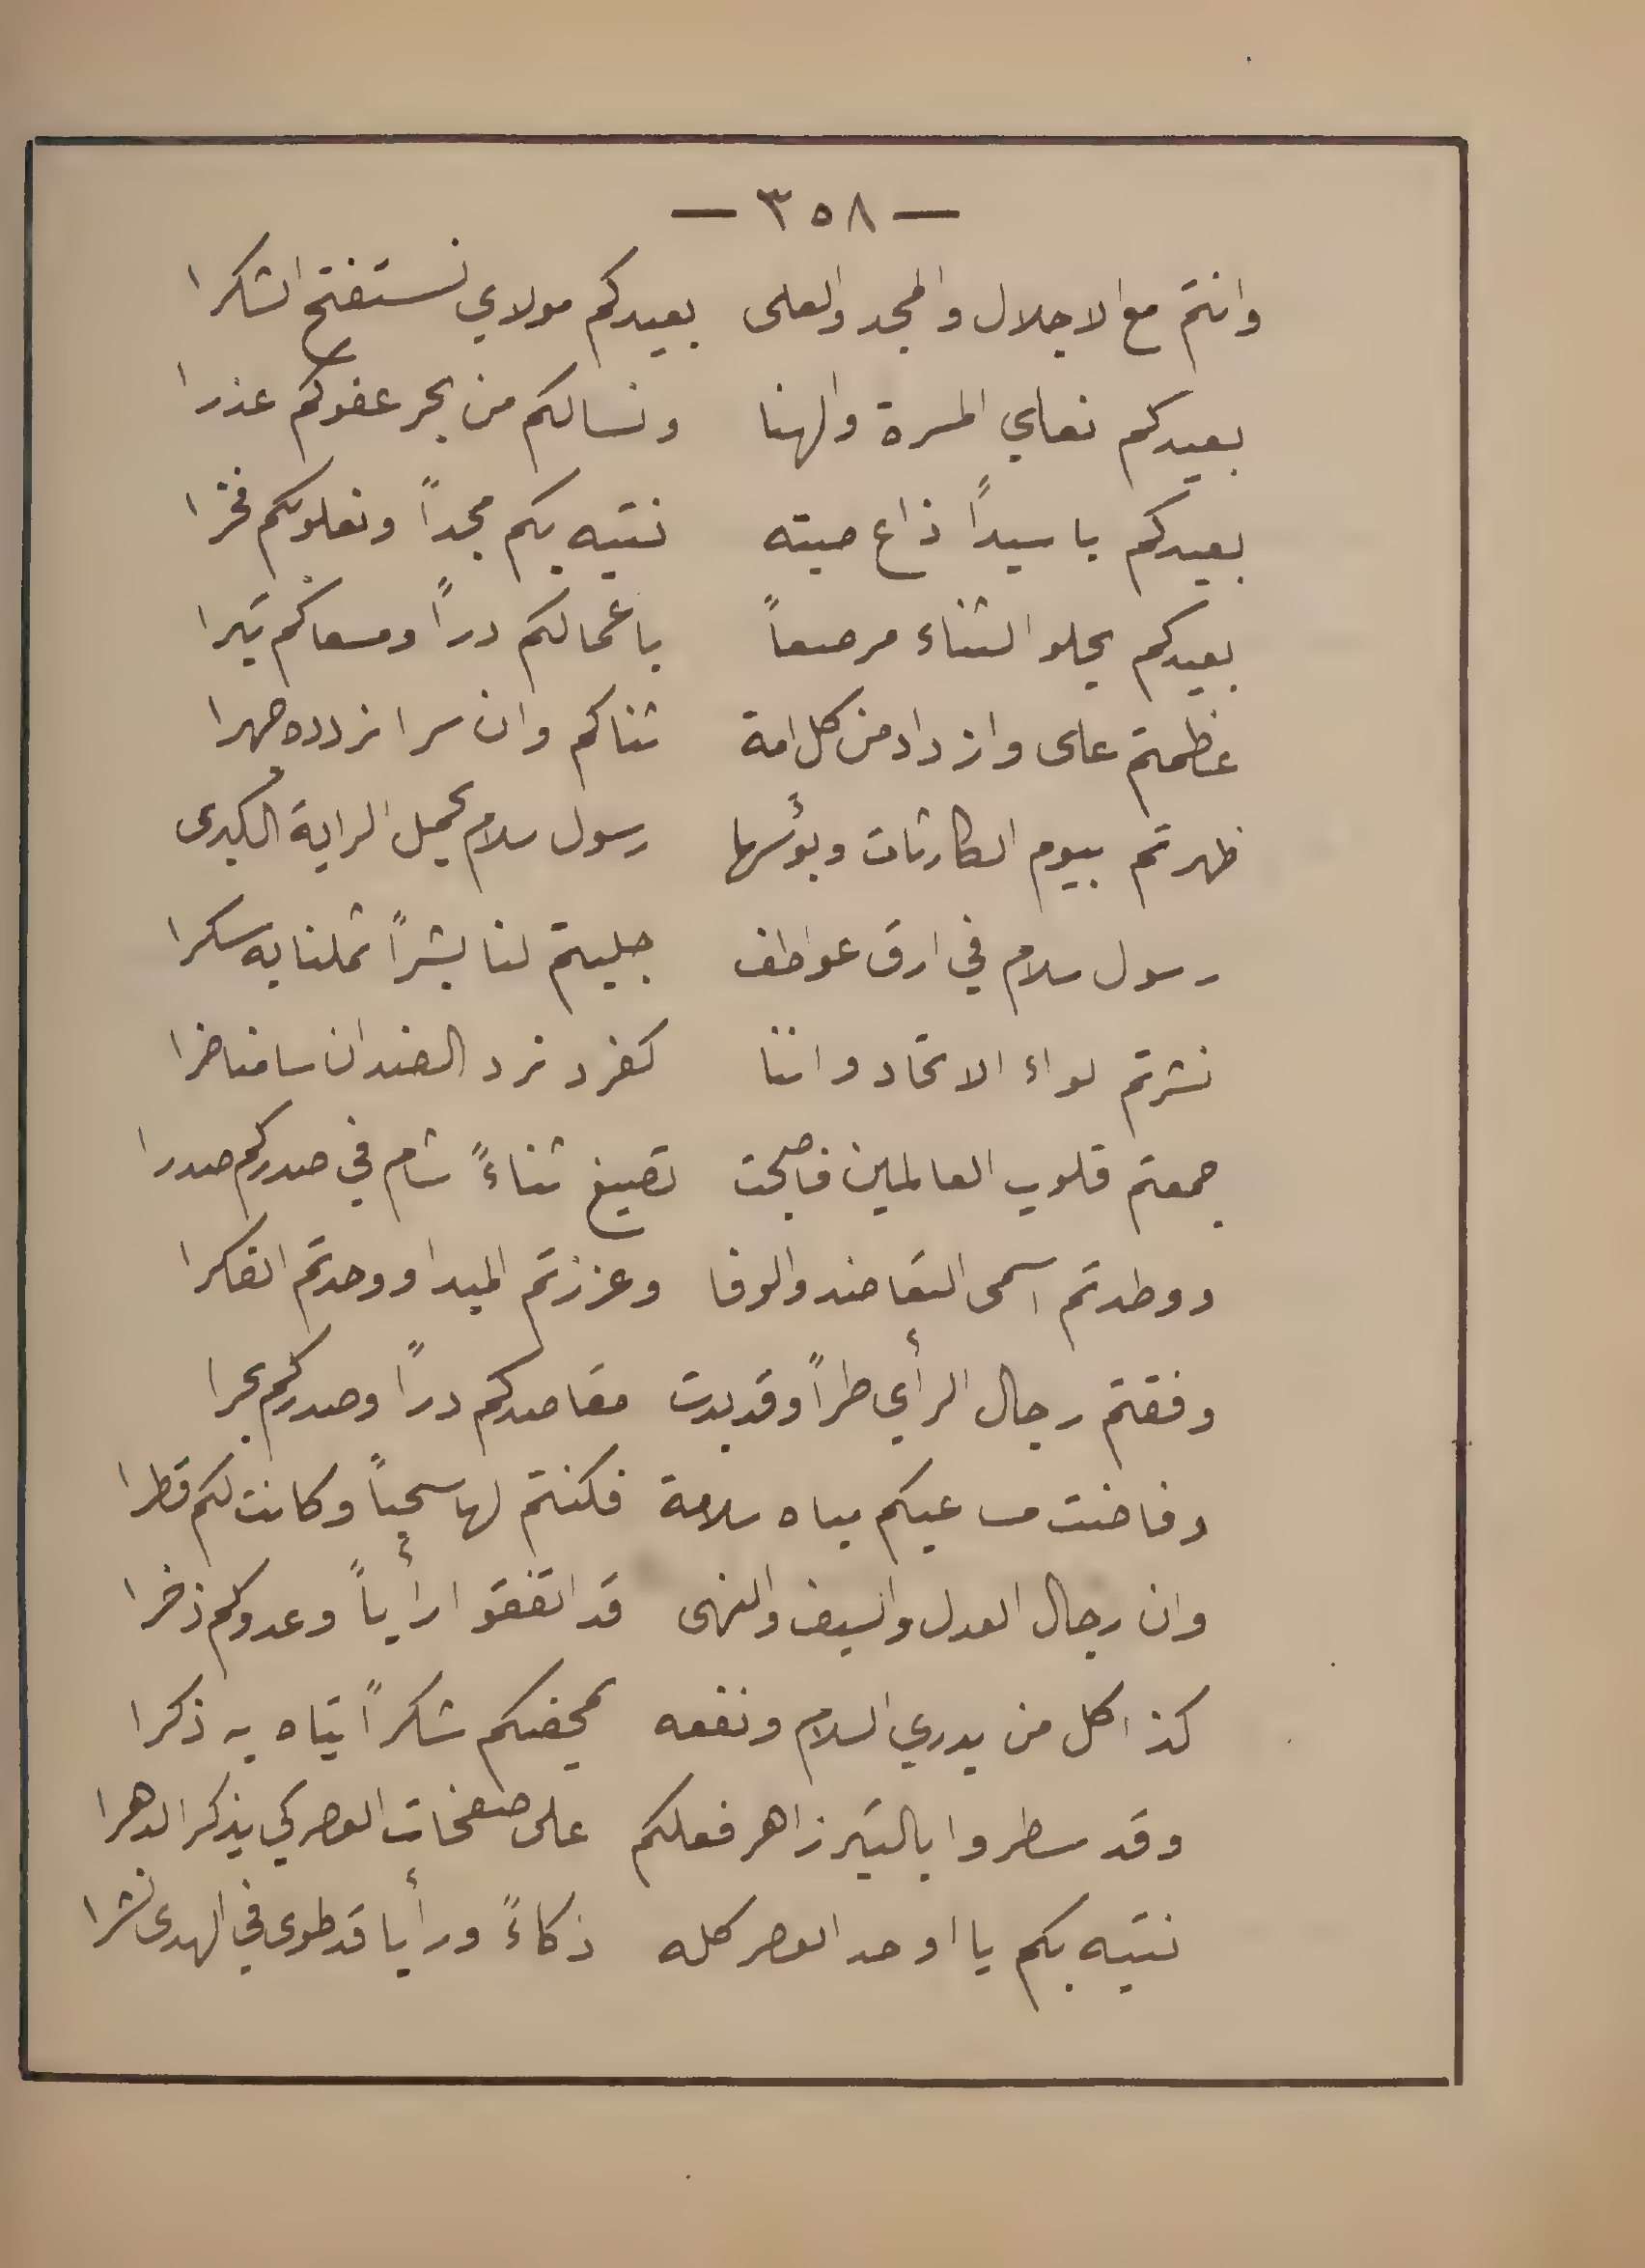 — ٣٥٨ —
وانتم مع الاجلال والمجد والعلى بعيدكم مولاي نستفتح الشكرا
بعيدكم نعاي المسرة والهنا ونسالكم من بحر عفوكم عذرا
بعيدكم يا سيداً ذاع صيته نتيه بكم مجداً ونعلو بكم فخرا
بعيدكم يحلو الثناء مرصعاً باعمالكم دراً ومسعاكم تبرا
عظمتم على وازداد من كل امة ثناكم وان سرا نردده جهرا
ظهرتم بيوم الكارثات وبؤسها رسول سلام يحمل الراية الكبرى
رسول سلام في ارق عواطف جليتم لنا بشراً ثملنا به سكرا
نشرتم لواء الاتحاد واننا كفرد نرد الضد ان سامنا ضرا
جمعتم قلوب العالمين فاصبحت تصيغ ثناءً شام في صدركم صدرا
ووطدتم اسمى التعاضد والوفا وعززتم المبدا ووحدتم الفكرا
وفقتم رجال الرأي طراً وقد بدت مقاصدكم دراً وصدركم بحرا
وفاضت مساعيكم مياه سلامة فكنتم لها سحباً وكانت لكم قطرا
وان رجال العدل والسيف والنهى قد اتفقوا رأياً وعدوكم ذخرا
كذا كل من يدري السلام ونفعه يمحضكم شكراً يتاه به ذكرا
وقد سطروا بالتبر زاهر فعلكم على صفحات العصر كي يذكر الدهرا
نتيه بكم يا اوحد العصر كله ذكاءً ورأيا قد طوى في الهدى نشرا